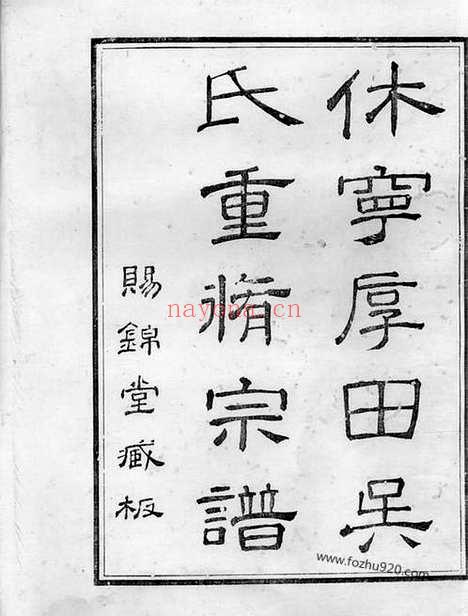 休寧厚田吳
氏重脩宗譜
賜錦堂藏板
nayona.cn
www.fozhu920.com